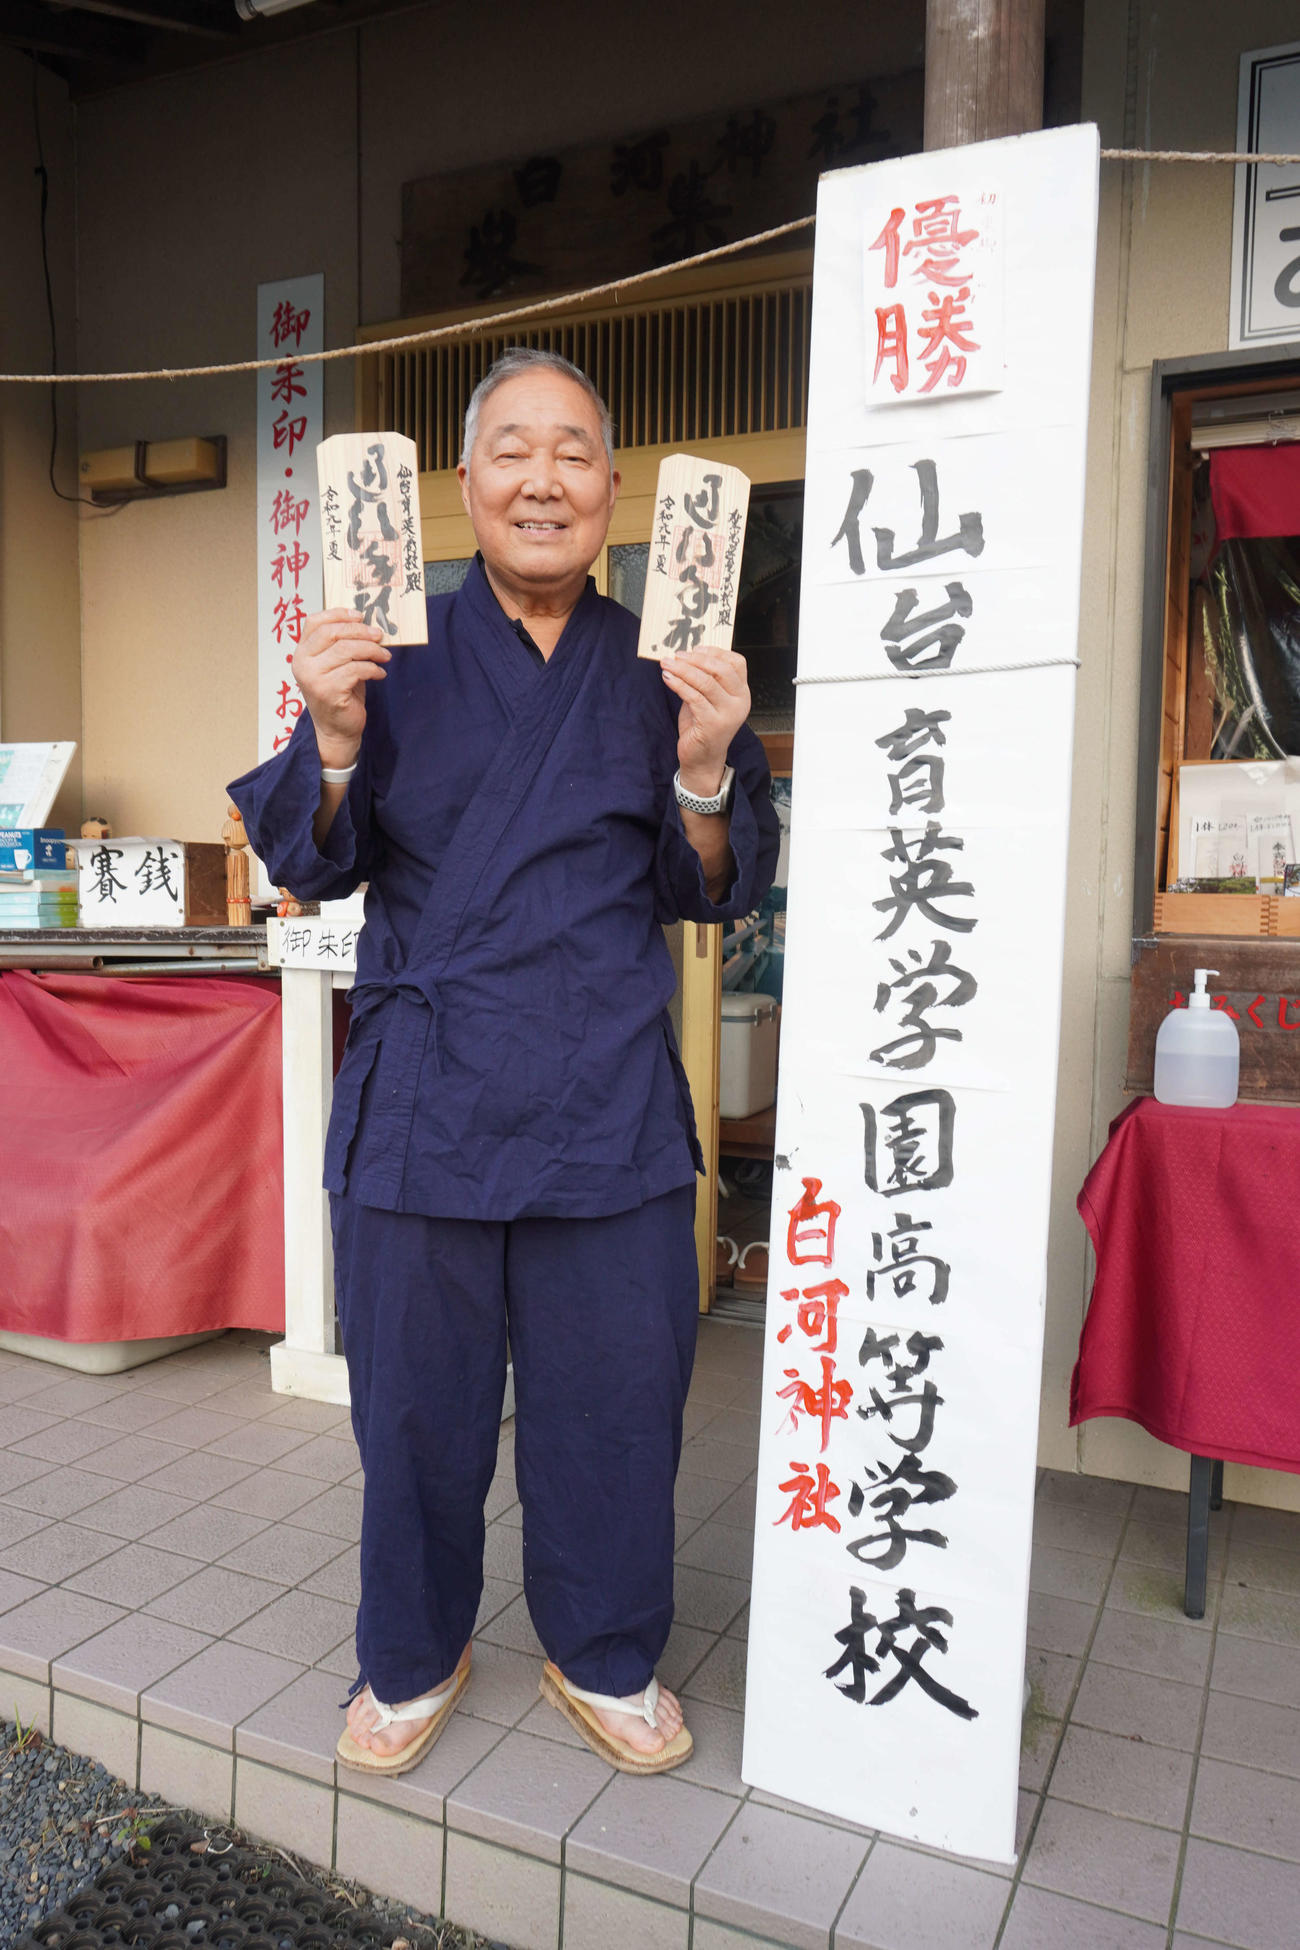 白河神社
集
御朱印・御神符・お
初
優勝
仙台育英学園高等学校
白河神社
仙台育英高校殿
通行手形
令和六年夏
聖光学院高校殿
通行手形
令和六年夏
賽銭
御朱印
PEANUTS
おみくじ